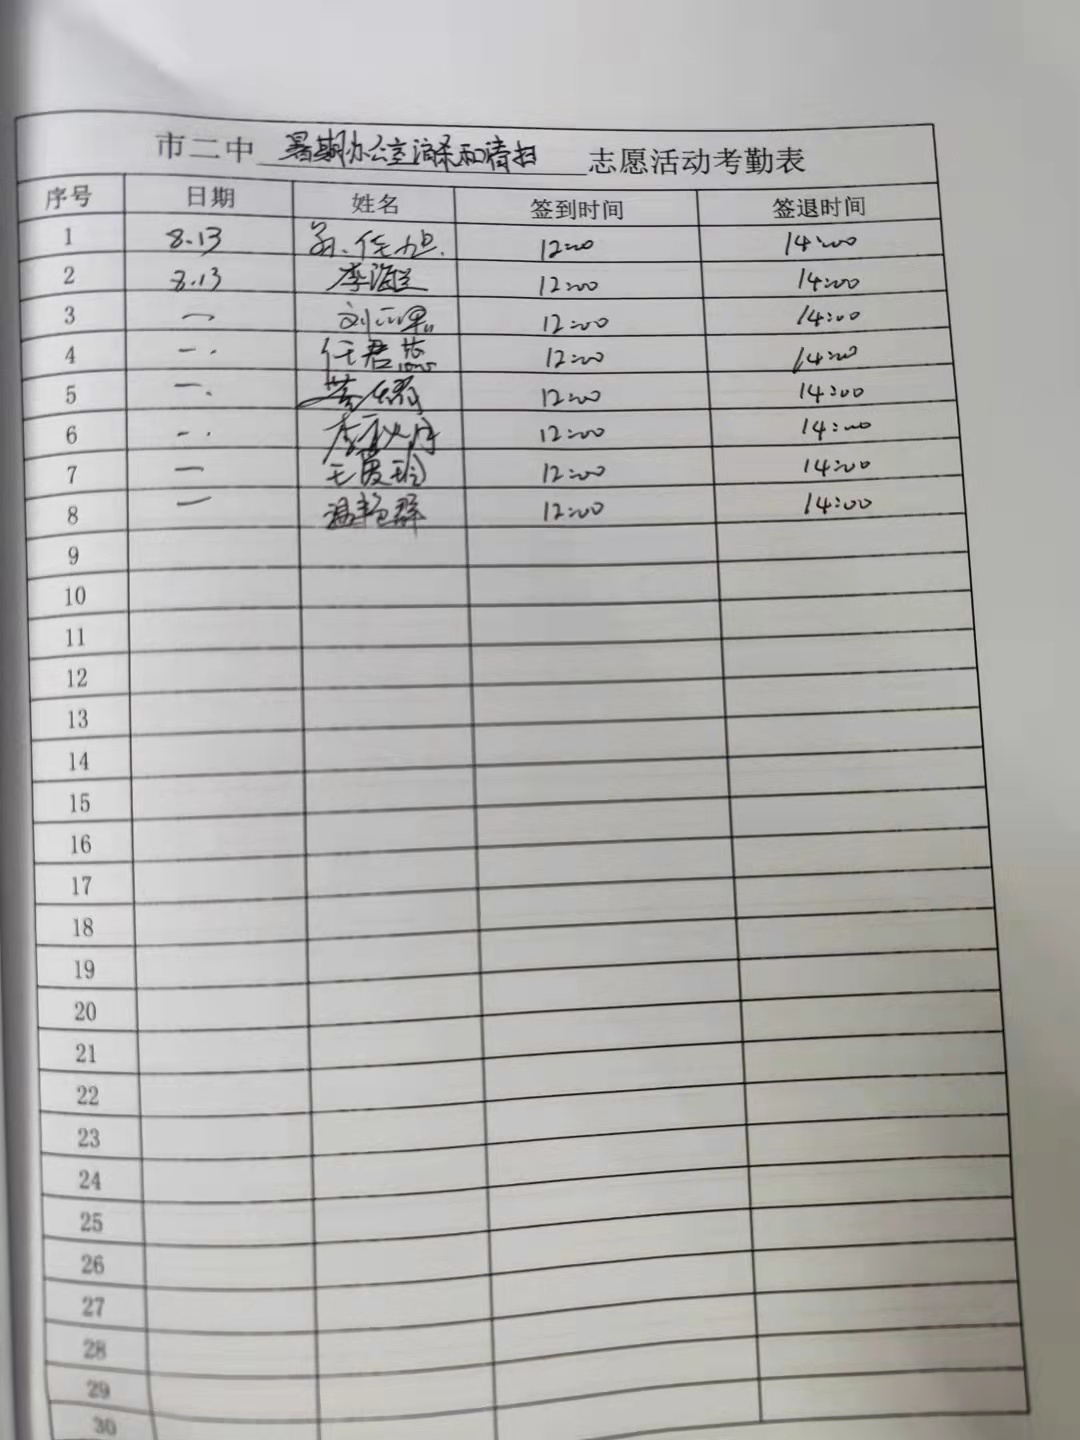 市二中 暑期办公室消杀和清扫 志愿活动考勤表
序号 日期 姓名 签到时间 签退时间
1 8.13 12:00 14:00
2 8.13 李海兰 12:00 14:00
3 一 刘 12:00 14:00
4 一. 任君 12:00 14:00
5 一. 12:00 14:00
6 一. 李 12:00 14:00
7 一 王霞 12:00 14:00
8 一 温艳群 12:00 14:00
9
10
11
12
13
14
15
16
17
18
19
20
21
22
23
24
25
26
27
28
29
30